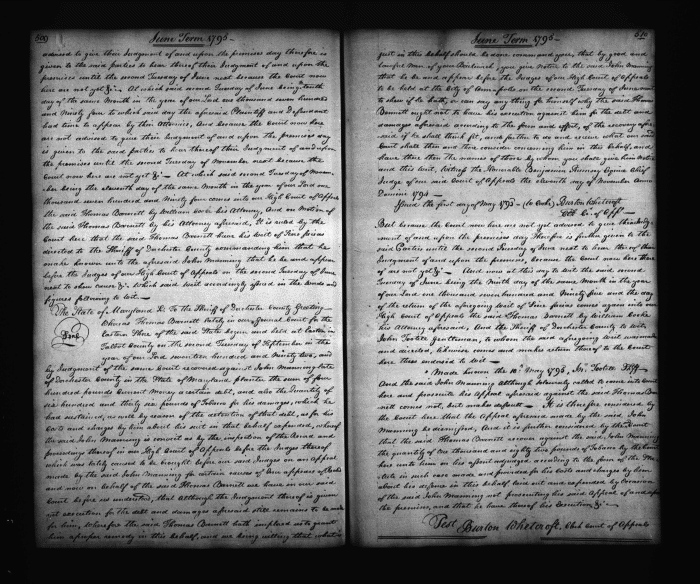 509
June Term 1795 -
advised to give their Judgment of and upon the premises day therefore is
given to the said parties to hear thereof their Judgment of and upon the
premises until the second Tuesday of June next because the Court now
here are not yet &c. - At which said second Tuesday of June being tenth
day of the same Month in the year of our Lord one thousand seven hundred
and Ninety four to which day the aforesaid Plaintiff and Defendant
had time to appear by their Attornies, And because the Court now here
are not advised to give their Judgment of and upon the premises day
is given to the said parties to hear thereof their Judgment of and upon
the premises until the second Tuesday of November next because the
Court now here are not yet &c - At which said second Tuesday of Novem-
ber being the eleventh day of the same Month in the year of our Lord one
thousand seven hundred and Ninety four comes into our High Court of Appeals
the said Thomas Barnett by William Cooke his Attorney, And on Motion of
the said Thomas Barnett by his Attorney aforesaid, It is ruled by the
Court here that the said Thomas Barnett have his Writ of Scire facias
directed to the Sheriff of Dorchester County commanding him that he
make known unto the aforesaid John Manning that he be and appear
before the Judges of our High Court of Appeals on the second Tuesday of June
next to shew cause &c. Which said writ accordingly issued in the words and
figures following to wit -
The State of Maryland Sc. To the Sheriff of Dorchester County Greeting
Whereas Thomas Barnett lately in our General Court for the
Eastern Shore of the said State begun and held at Easton in
Talbot County on the second Tuesday of September in the
year of our Lord seventeen hundred and Ninety two, and
by Judgment of the same Court recovered against John Manning late
of Dorchester County in the State of Maryland planter the sum of four
hundred pounds current money a certain debt, and also the quantity of
six hundred and thirty six pounds of Tobacco for his damages, which he
had sustained, as well by reason of the detention of that debt, as for his
Costs and charges by him about his suit in that behalf expended, whereof
the said John Manning is convict as by the inspection of the record and
proceedings thereof in our High Court of Appeals before the Judges thereof
which was lately caused to be brought before our said Judges on an Appeal
made by the said John Manning for certain causes of Ann appears of Record
and now on behalf of the said Thomas Barnett we have in our said
Court before us understood, that although the Judgment thereof is given
yet execution for the debt and damages aforesaid still remains to be made
for him, Wherefore the said Thomas Barnett hath implored us to grant
him a proper remedy in this behalf, and we being willing that what is
510
June Term 1795 -
just in this behalf should be done command you, that by good and
lawful Men of your Bailiwick, you give Notice to the said John Manning
that he be and appear before the Judges of our High Court of Appeals
to be held at the City of Annapolis on the second Tuesday of June next
to shew if he hath, or can say any thing for himself why the said Thomas
Barnett ought not to have his execution against him for the debt and
damages aforesaid according to the form and effect, of the recovery afore-
said, if he shall think fit, and further to do and receive what our said
Court shall then and there consider concerning him in this behalf, and
have there then the names of those by whom you shall give him notice
and this Writ, Witness the Honorable Benjamin Rumsey Esquire Chief
Judge of our said Court of Appeals the eleventh day of November Anno
Domini 1794 -
Issued the first day of May 1795 - (W. Cooke) Burton Whetcroft
Clk Ct. of App.
But because the Court now here are not yet advised to give their Judg-
ment of and upon the premises day Therefore is further given to the
said Parties unto the second Tuesday of June next to hear thereof their
Judgment of and upon the premises, because the Court now here there
of are not yet &c - And now at this day to wit the said second
Tuesday of June being the Ninth day of the same Month in the year
of our Lord one thousand seven hundred and Ninety five and the day
of the return of the aforegoing writ of Scire facias comes again into our
High Court of Appeals the said Thomas Barnett by William Cooke
his Attorney aforesaid, And the Sheriff of Dorchester County to wit,
John Tootell Gentleman, to whom the said aforegoing writ was sent
and directed, likewise comes and makes return thereof to the Court
here thus endorsed to wit -
"Made known the 12th May 1795, Jn. Tootell Shff -
And the said John Manning although solemnly called to come into Court
here and prosecute his Appeal aforesaid against the said Thomas Bar-
nett comes not, but makes default - It is therefore considered by
the Court here that the Appeal aforesaid made by the said John
Manning be dismissed, And it is further considered by the Court
that the said Thomas Barnett recover against the said John Manning
the quantity of one thousand and eighty two pounds of Tobacco by the Court
here unto him on his assent adjudged according to the form of the Sta-
tute in such case made and provided for his Costs and charges by him
about his defence in this behalf laid out and expended by Occasion
of the said John Manning not prosecuting his said Appeal of and upon
the premises, and that he have thereof his Execution &c -
Test
Burton Whetcroft, Clerk Court of Appeals